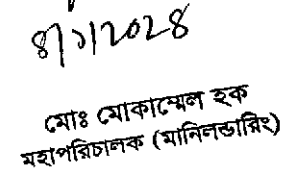 ৪/১/2028
মোঃ মোকাম্মেল হক
মহাপরিচালক (মানিলন্ডারিং)